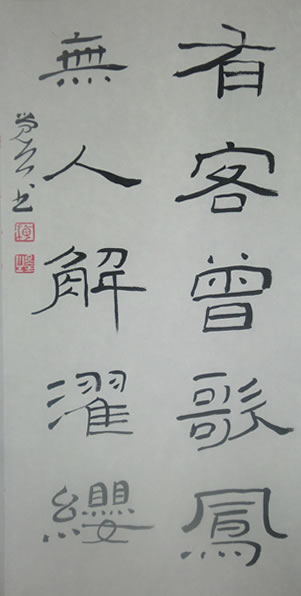 有客曾歌鳳
無人解濯纓